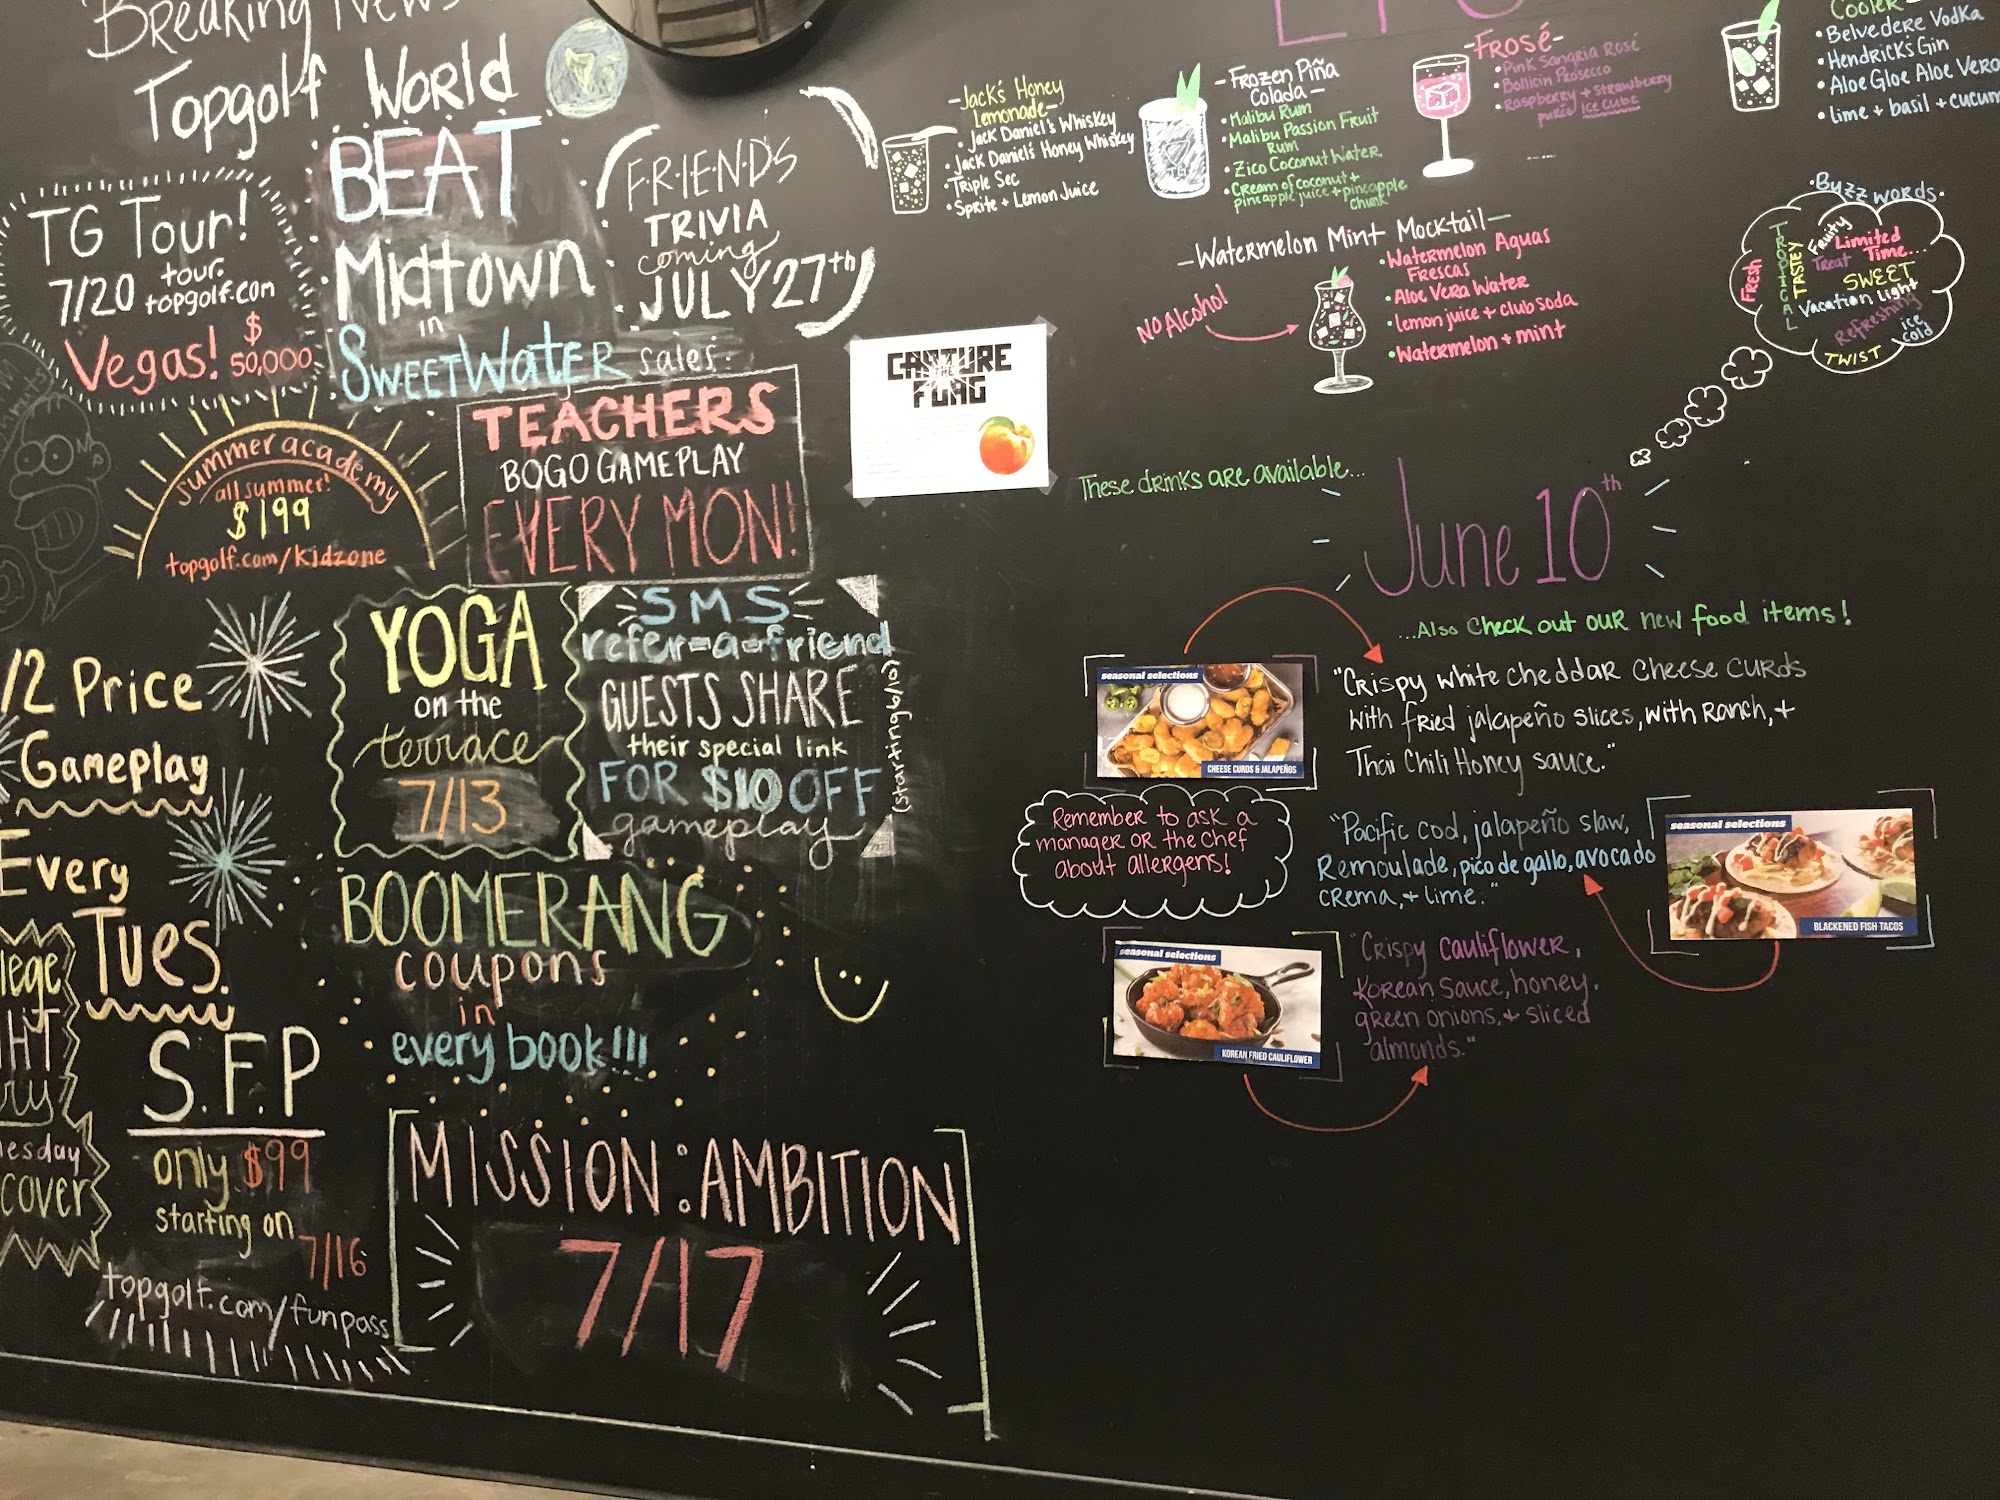 Breaking News
Topgolf World
TG Tour!
7/20 tour.
topgolf.com
Vegas! $
50,000
BEAT
Midtown
in
SWEETWATER sales!
F·R·I·E·N·D·S
TRIVIA
coming
JULY 27th
summer academy
all summer!
$199
topgolf.com/kidzone
TEACHERS
BOGO GAMEPLAY
EVERY MON!
CAPTURE
THE
FLAG
1/2 Price
Gameplay
Every
Tues.
YOGA
on the
terrace
7/13
SMS
refer-a-friend
GUESTS SHARE
their special link
FOR $10 OFF
gameplay
(starting 6/10)
BOOMERANG
coupons
in
every book!!!
S.F.P
only $99
starting on
7/16
topgolf.com/funpass
lege
HT
esday
cover
MISSION: AMBITION
7/17
-Jack's Honey
Lemonade-
• Jack Daniel's Whiskey
• Jack Daniel's Honey Whiskey
• Triple Sec
• Sprite + Lemon Juice
-Frozen Piña
Colada-
• Malibu Rum
• Malibu Passion Fruit
Rum
• Zico Coconut Water
• Cream of coconut +
pineapple juice + pineapple
chunk
TG
-Frosé-
• Pink Sangria Rosé
• Bollicini Prosecco
• Raspberry + strawberry
purée ice cube
Cooler-
• Belvedere Vodka
• Hendrick's Gin
• Aloe Gloe Aloe Vera
• lime + basil + cucum
-Watermelon Mint Mocktail-
No Alcohol
• Watermelon Aguas
Frescas
• Aloe Vera Water
• lemon juice + club soda
• Watermelon + mint
·Buzz words·
Fresh
TROPICAL
TASTEY
Fruity
Limited
Time...
Treat
SWEET
Vacation Light
Refreshing
ice
cold
TWIST
These drinks are available...
June 10th
...Also check out our new food items!
seasonal selections
CHEESE CURDS & JALAPEÑOS
"Crispy white cheddar cheese curds
with fried jalapeño slices, with ranch, +
Thai Chili Honey sauce."
Remember to ask a
manager or the chef
about allergens!
"Pacific cod, jalapeño slaw,
Remoulade, pico de gallo, avocado
crema, + lime."
seasonal selections
BLACKENED FISH TACOS
seasonal selections
KOREAN FRIED CAULIFLOWER
"Crispy cauliflower,
Korean sauce, honey,
green onions, + sliced
almonds."